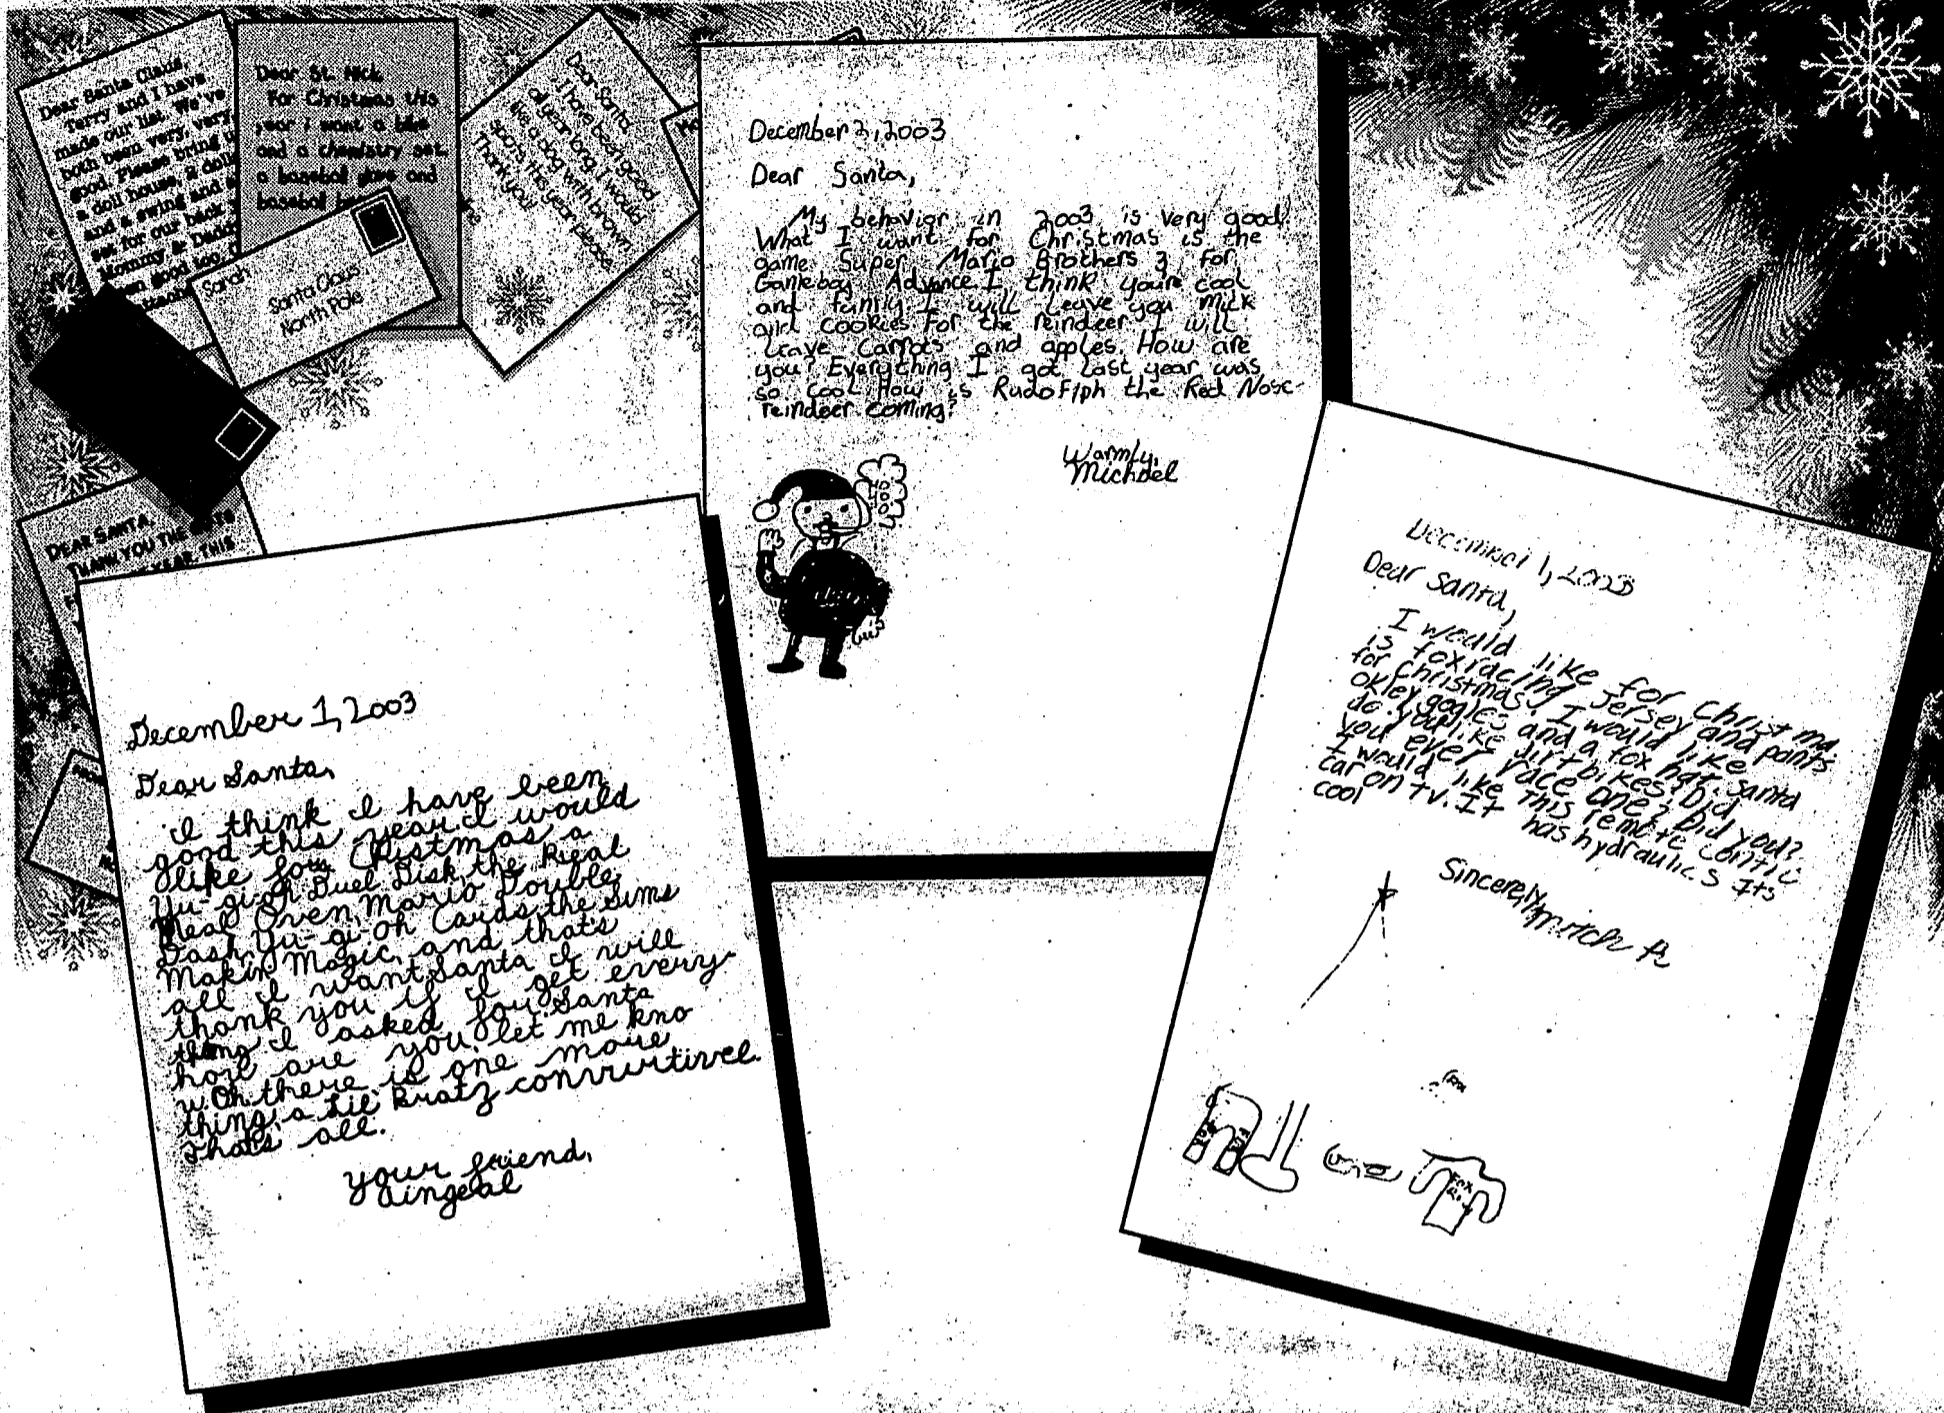 Dear Santa Claus,
Terry and I have
made our list. We've
both been very, very,
good. Please bring u
a doll house, 2 doll
and a swing and s
set for our back
Mommy & Dadd
en good too.
Dear St. Nick
For Christmas this
year I want a bike
and a chemistry set.
a baseball glove and
baseball b
Dear Santa
I have been good
all year long. I would
like a dog with brown
spots this year please.
Thank you!
Sarah
Santa Claus
North Pole
DEAR SANTA,
THANK YOU THE
YEAR. THIS
December 2, 2003
Dear Santa,
My behavior in 2003 is very good!
What I want for Christmas is the
game Super Mario Brothers 3 for
Gameboy Advance I think you're cool
and funny I will leave you milk
and cookies for the reindeer I will
leave carrots and apples. How are
you? Everything I got last year was
so cool How is Rudoflph the Red Nose-
reindeer coming?
Warmly,
Michael
December 1, 2003
Dear Santa,
I think I have been
good this year. I would
like for Christmas a
Yu-gi-oh Duel Disk, the Real
Meal Oven, Mario Double
Dash, Yu-gi-oh Cards, the Sims
Makin Magic, and that's
all I want Santa I will
thank you if I get every-
thing I asked for. Santa
how are you, let me kno
w. Oh there is one more
thing, a Lil Bratz convurtivel.
Thats all.
your friend,
aingeal
December 1, 2003
Dear Santa,
I would like for Christma
is fox racing jersey and pants
for Christmas. I would like
okley gogles and a fox hat. Santa
do you like dirtbikes? Did
you ever race one? Did you?
I would like this remote contic
car on tv. It has hydraulics Its
cool
Sincerely,
Mitch R
Fox